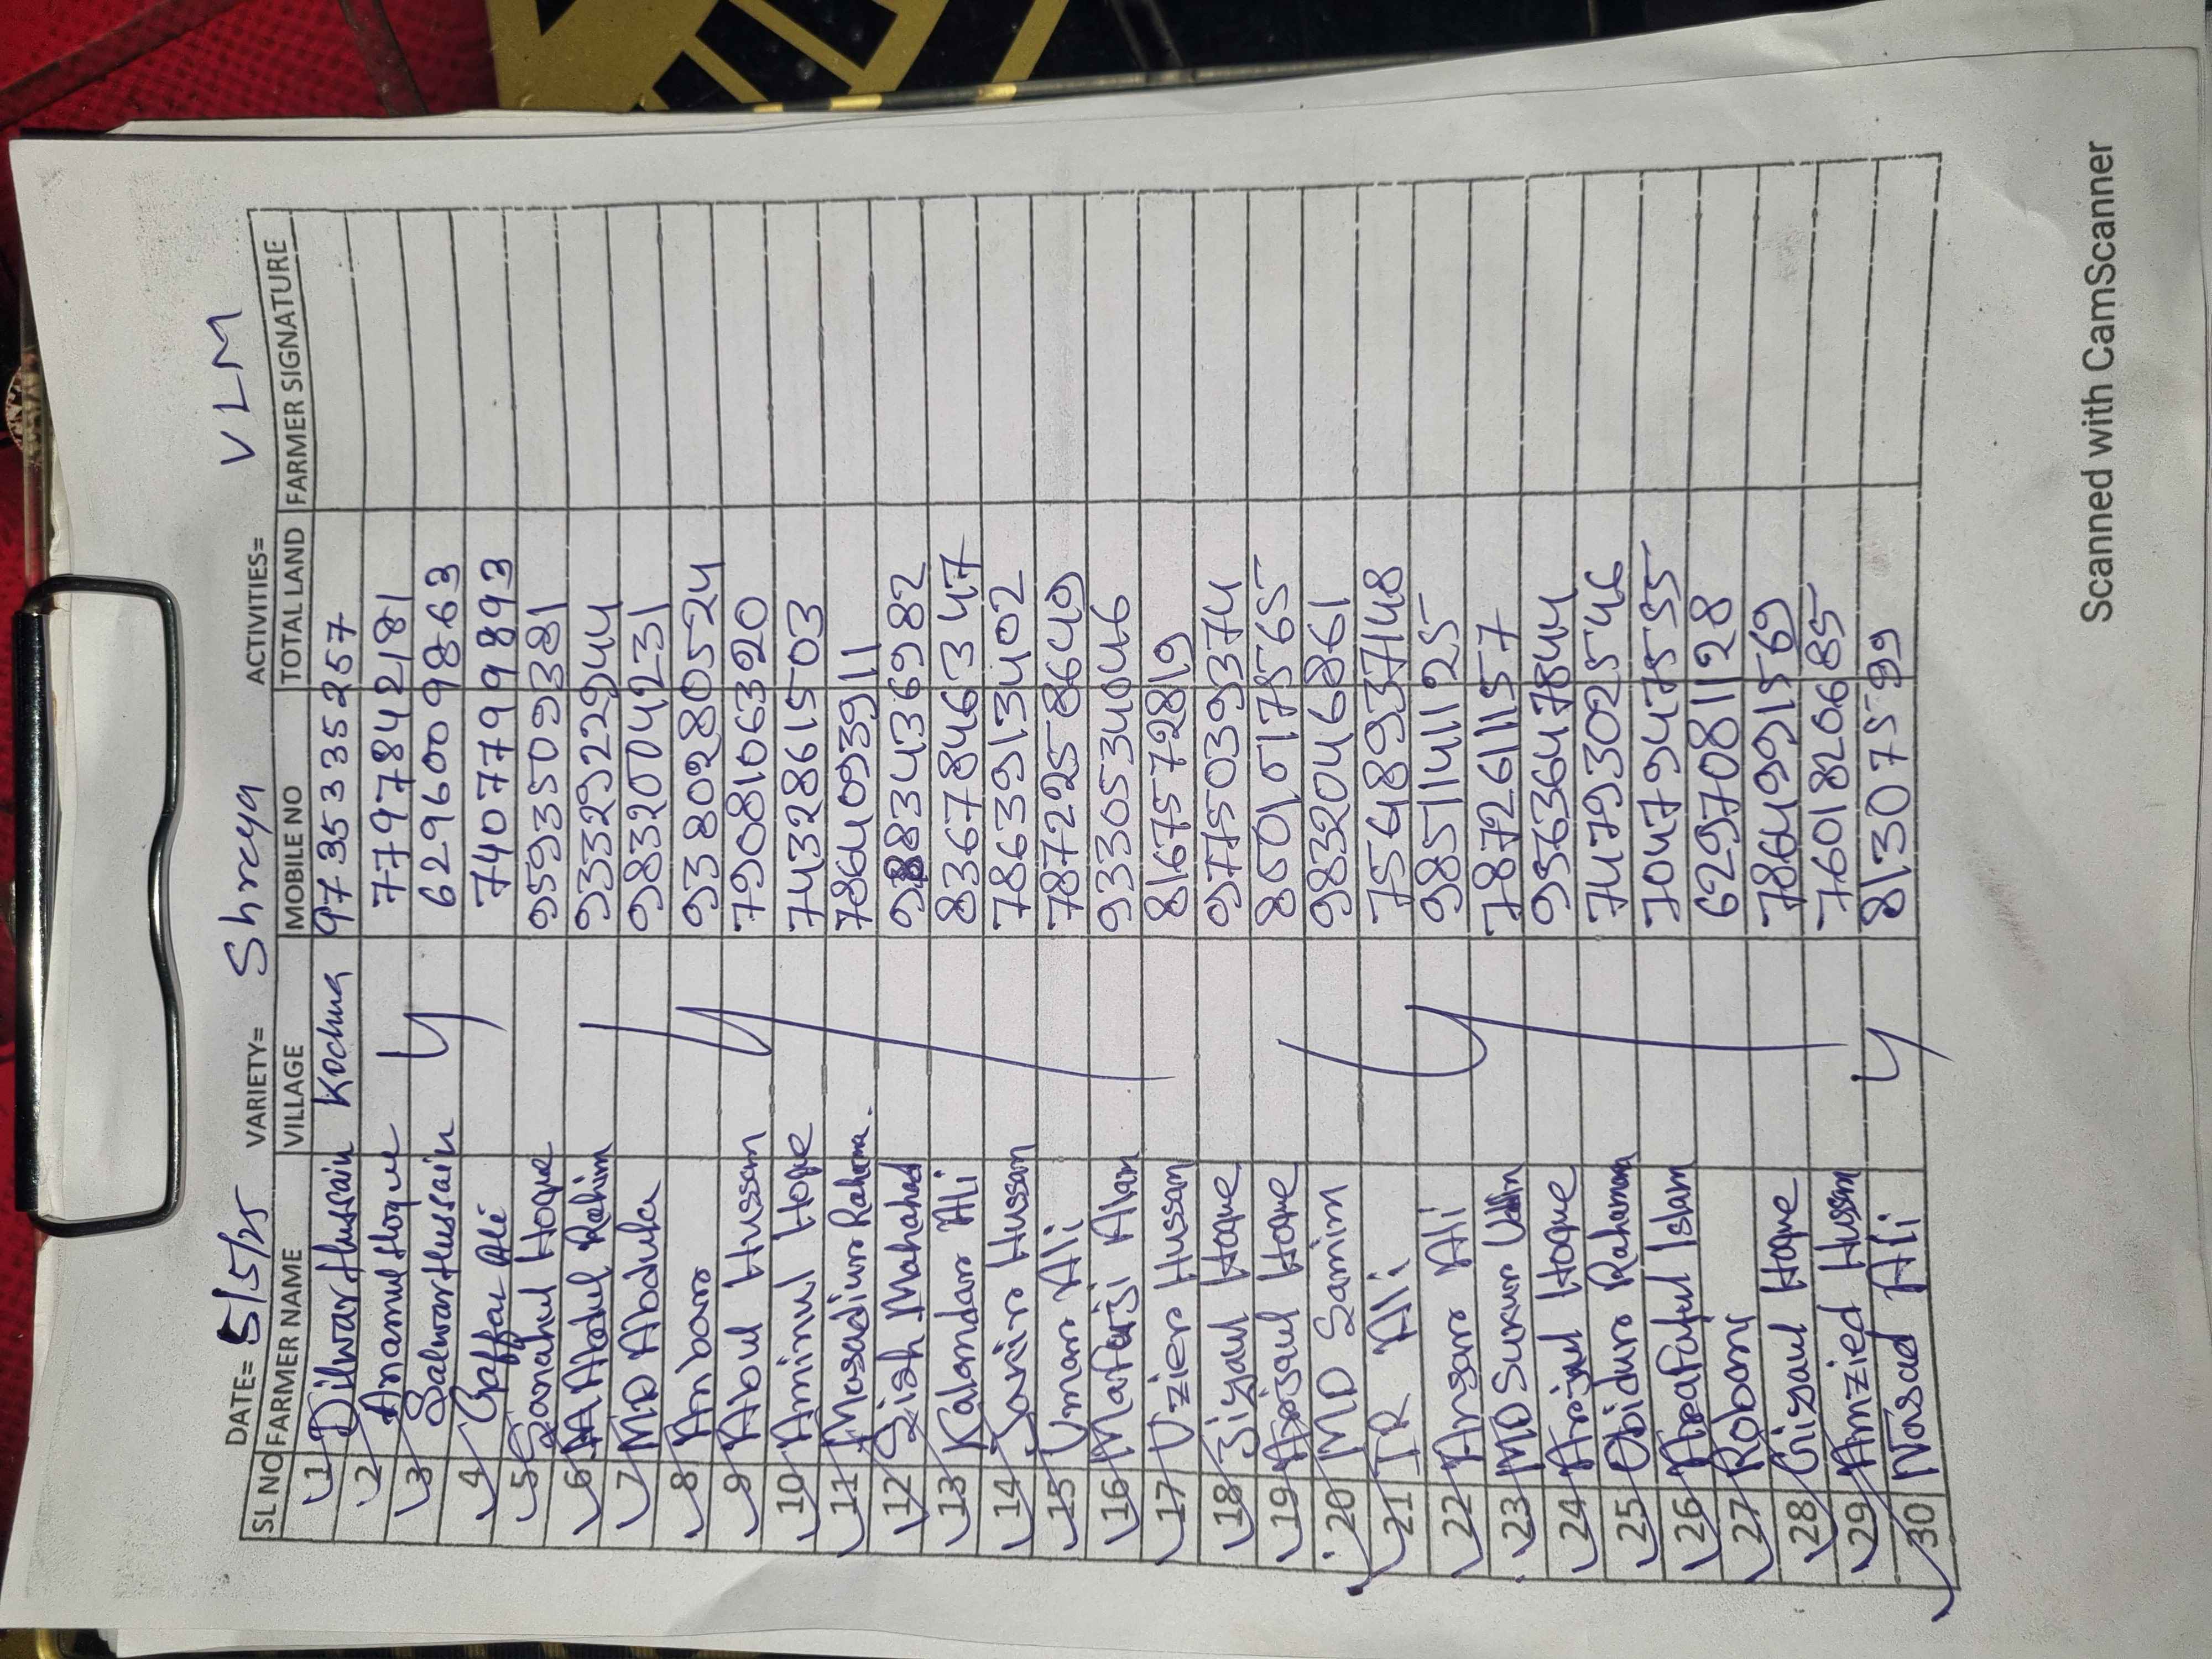 DATE= 5/5/25 VARIETY= Shreya ACTIVITIES= VLM
SL NO FARMER NAME VILLAGE MOBILE NO TOTAL LAND FARMER SIGNATURE
1 Dilwar Hussain Kochua 9735335257
2 Anamul Hoque 7797842181
3 Salwar Hussain 6296009863
4 Gaffar Ali 7407799893
5 Sanahul Hoque 9593509381
6 Abdul Rahim 9332922944
7 MD Abaduka 9832004231
8 Anbar 9380280524
9 Abul Hussain 7908106320
10 Aminul Hoque 7432861503
11 Masadiur Rahama. 7864093911
12 Siah Mahahad 9883436982
13 Kalandar Ali 8367846347
14 Javir Hussan 7863913402
15 Umar Ali 7872258649
16 Mafaiji Alam 9330534046
17 Uzier Hussan 8167572819
18 Ziyaul Hoque 9775039374
19 Arisaul Hoque 8601017565
20 MD Samim 9832046861
21 IR Ali 7548937148
22 Ansar Ali 9851141125
23 MD Sukur Uddin 7872611157
24 Arijul Hoque 9563647844
25 Obidur Rahaman 7479302546
26 Islam 7047947555
27 Robani 6297081128
28 Giyaul Hoque 7864991569
29 Amzied Hussan 7601820685
30 Norsad Ali 8130757599
Scanned with CamScanner